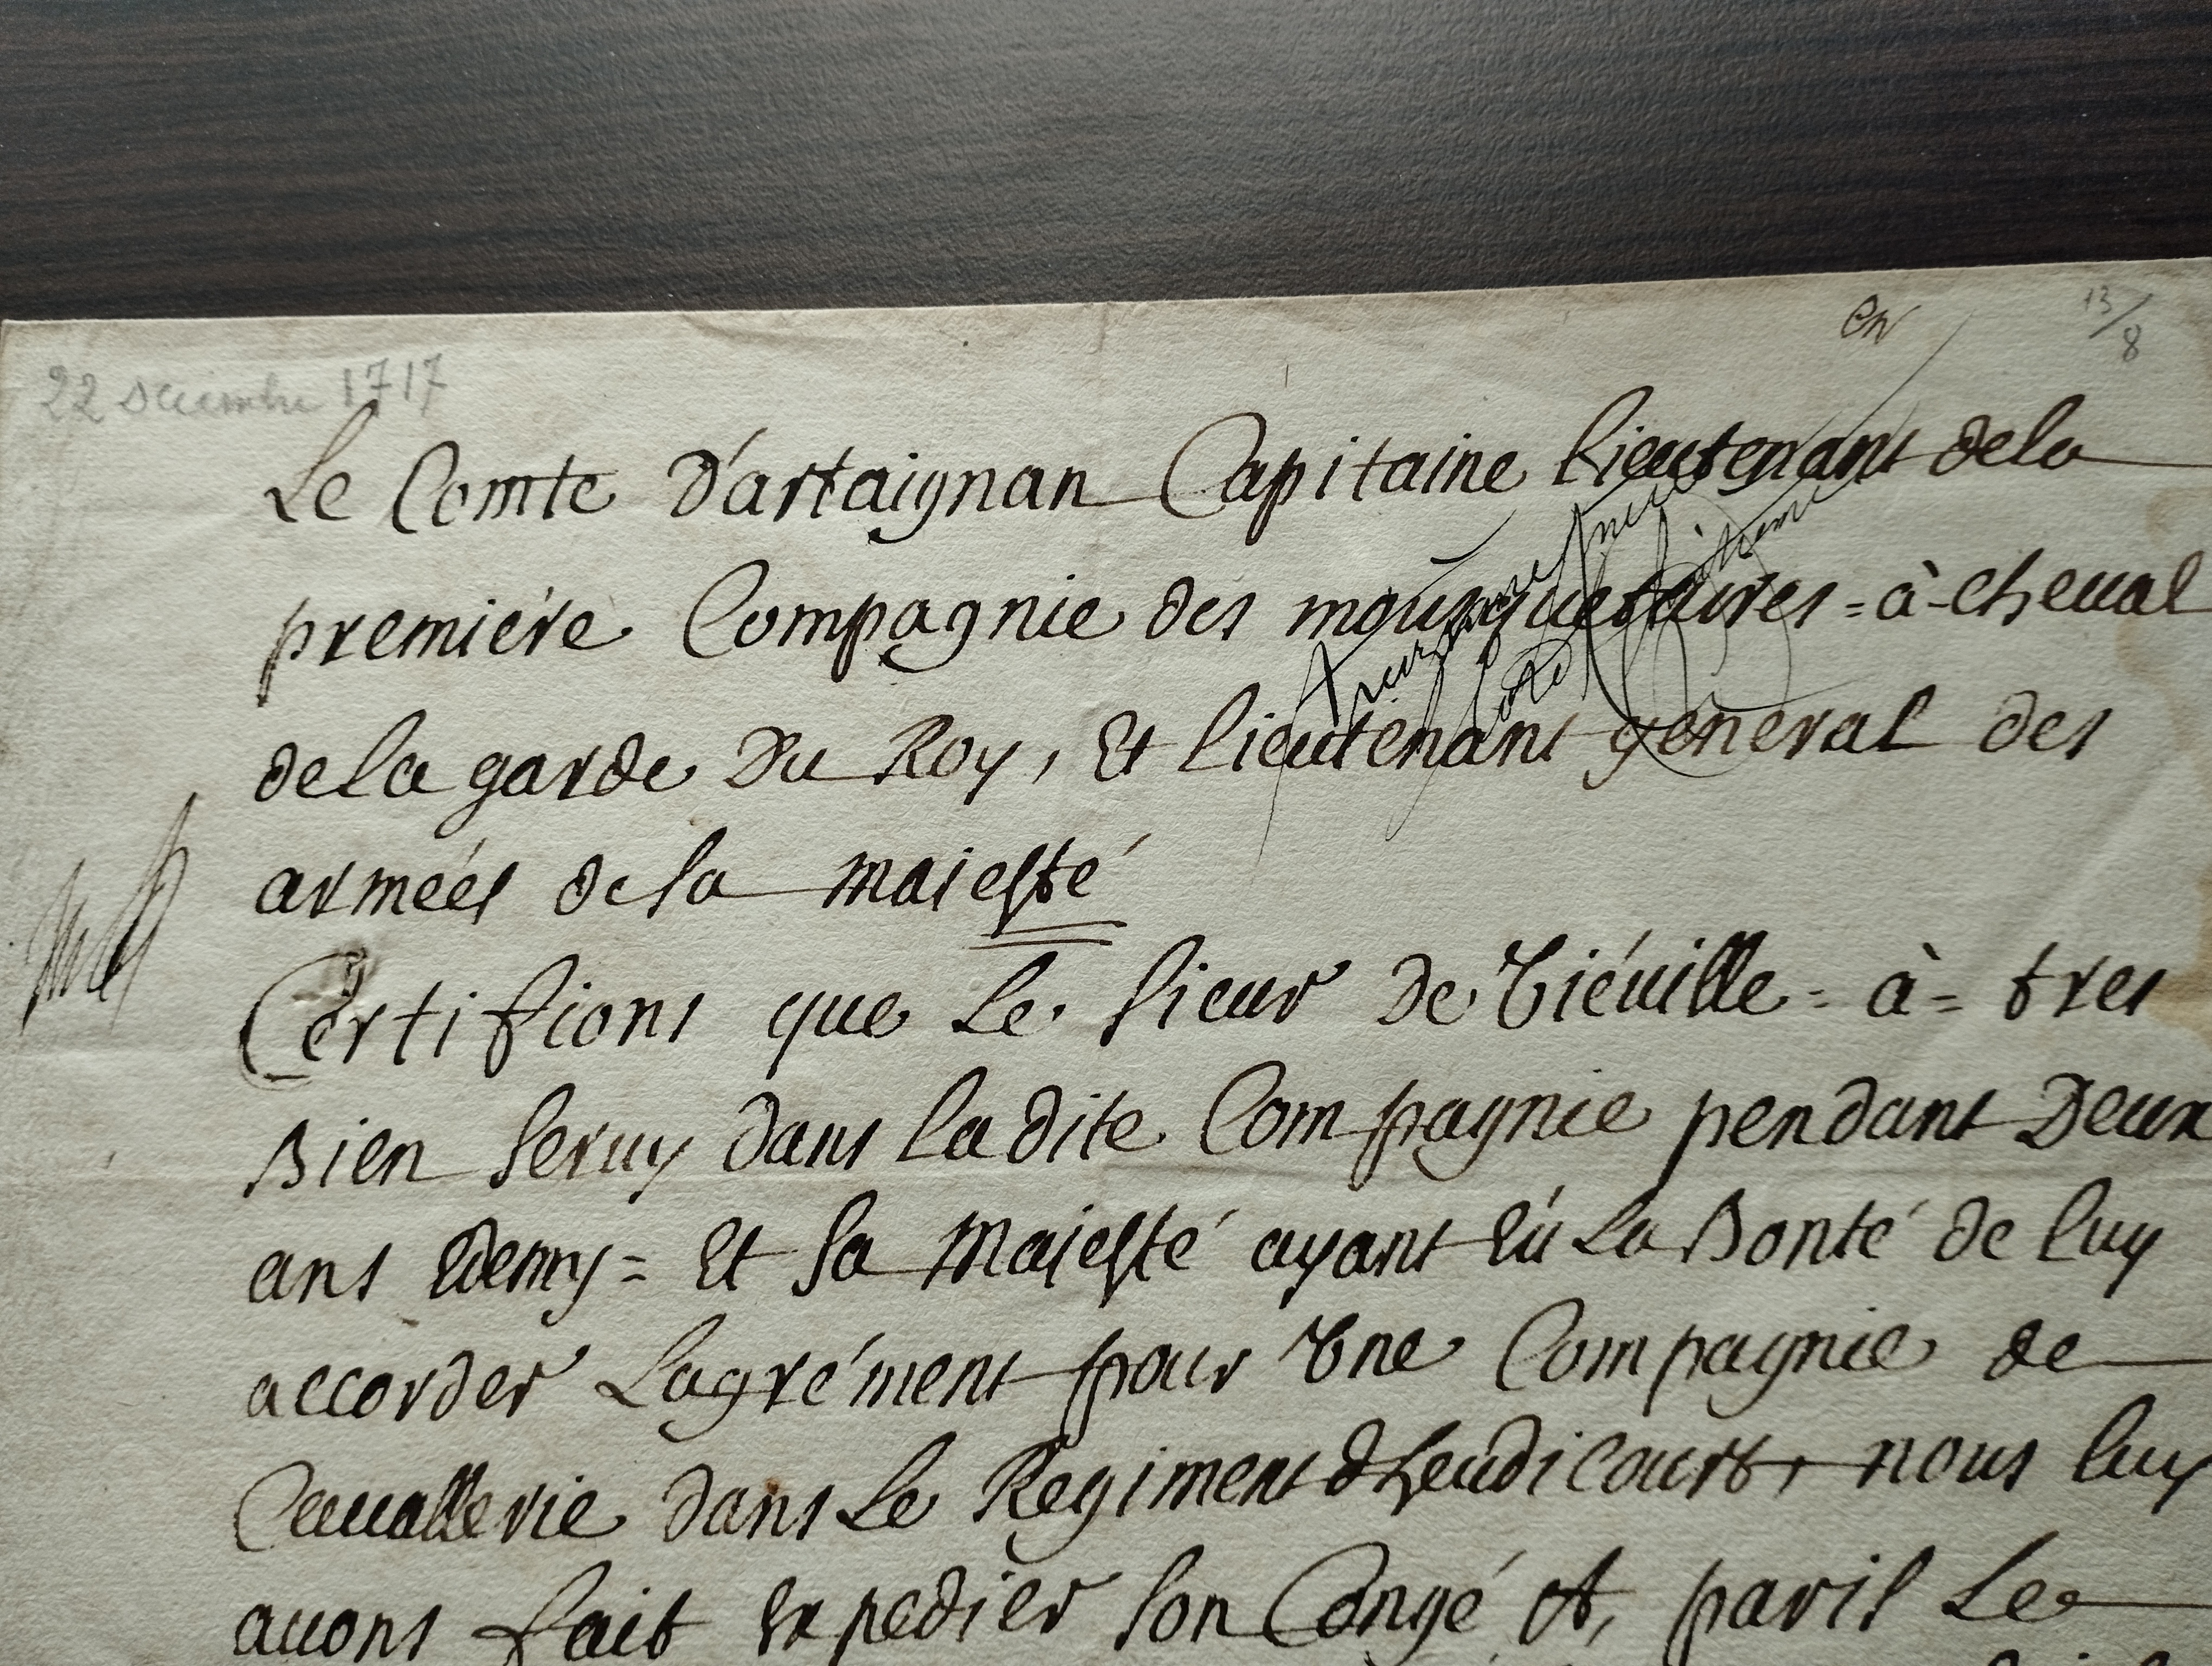 22 Décembre 1717
13/8
Le Comte D'artaignan Capitaine lieutenant dela
premiére Compagnie des mousquetaires = à - cheual
dela garde Du Roy, Et lieutenant general des
armées de sa maiesté
Certifions que Le sieur De Tiéuille = à = tres
Bien seruy dans ladite Compagnie pendant Deux
ans Edemy = Et sa Maiesté ayant Eú La Bonté de luy
accorder Lagrément pour Vne Compagnie de
Cauallerie dans Le Regiment dheudicourt, nous luy
auons fait Expedier son Congé A, paris Le